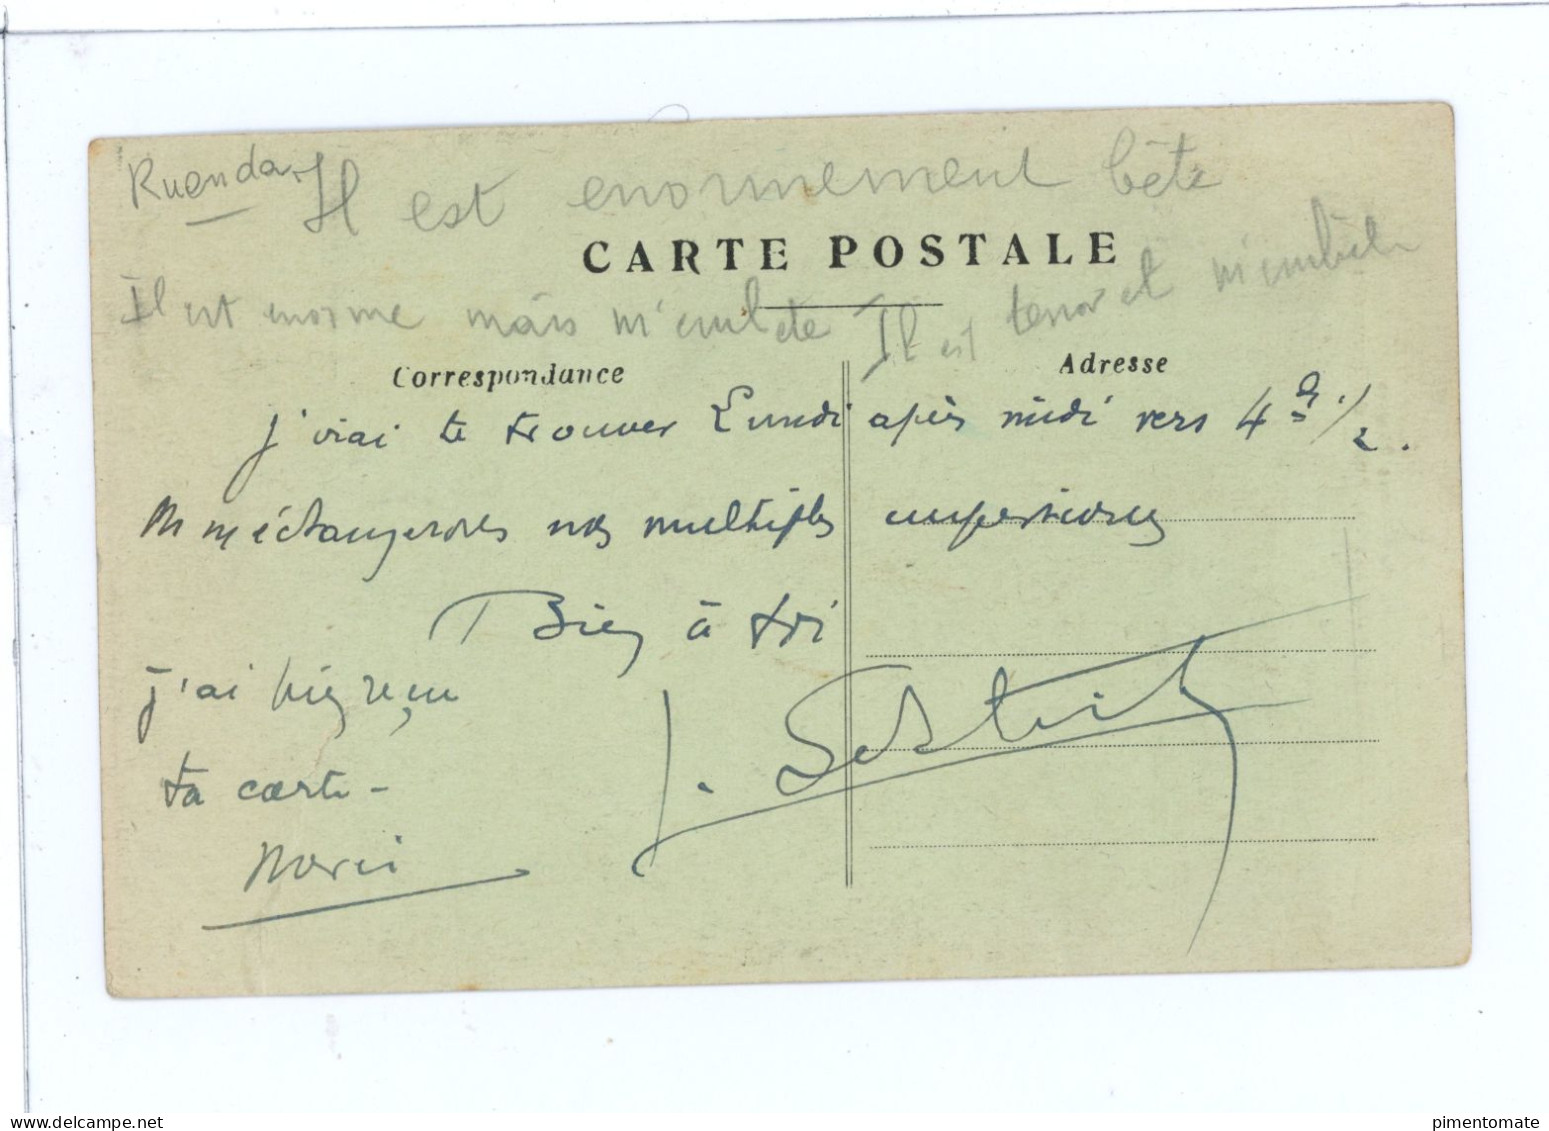 Ruenda. Il est enormement bête
CARTE POSTALE
Il est enorme mais m'embete Il est tenor et m'embête
Correspondance
Adresse
J'irai te trouver Lundi après midi vers 4 h 1/2.
échangerons nos multiples impressions
Bien à toi
J'ai bien reçu
ta carte -
Merci
J.
www.delcampe.net
pimentomate